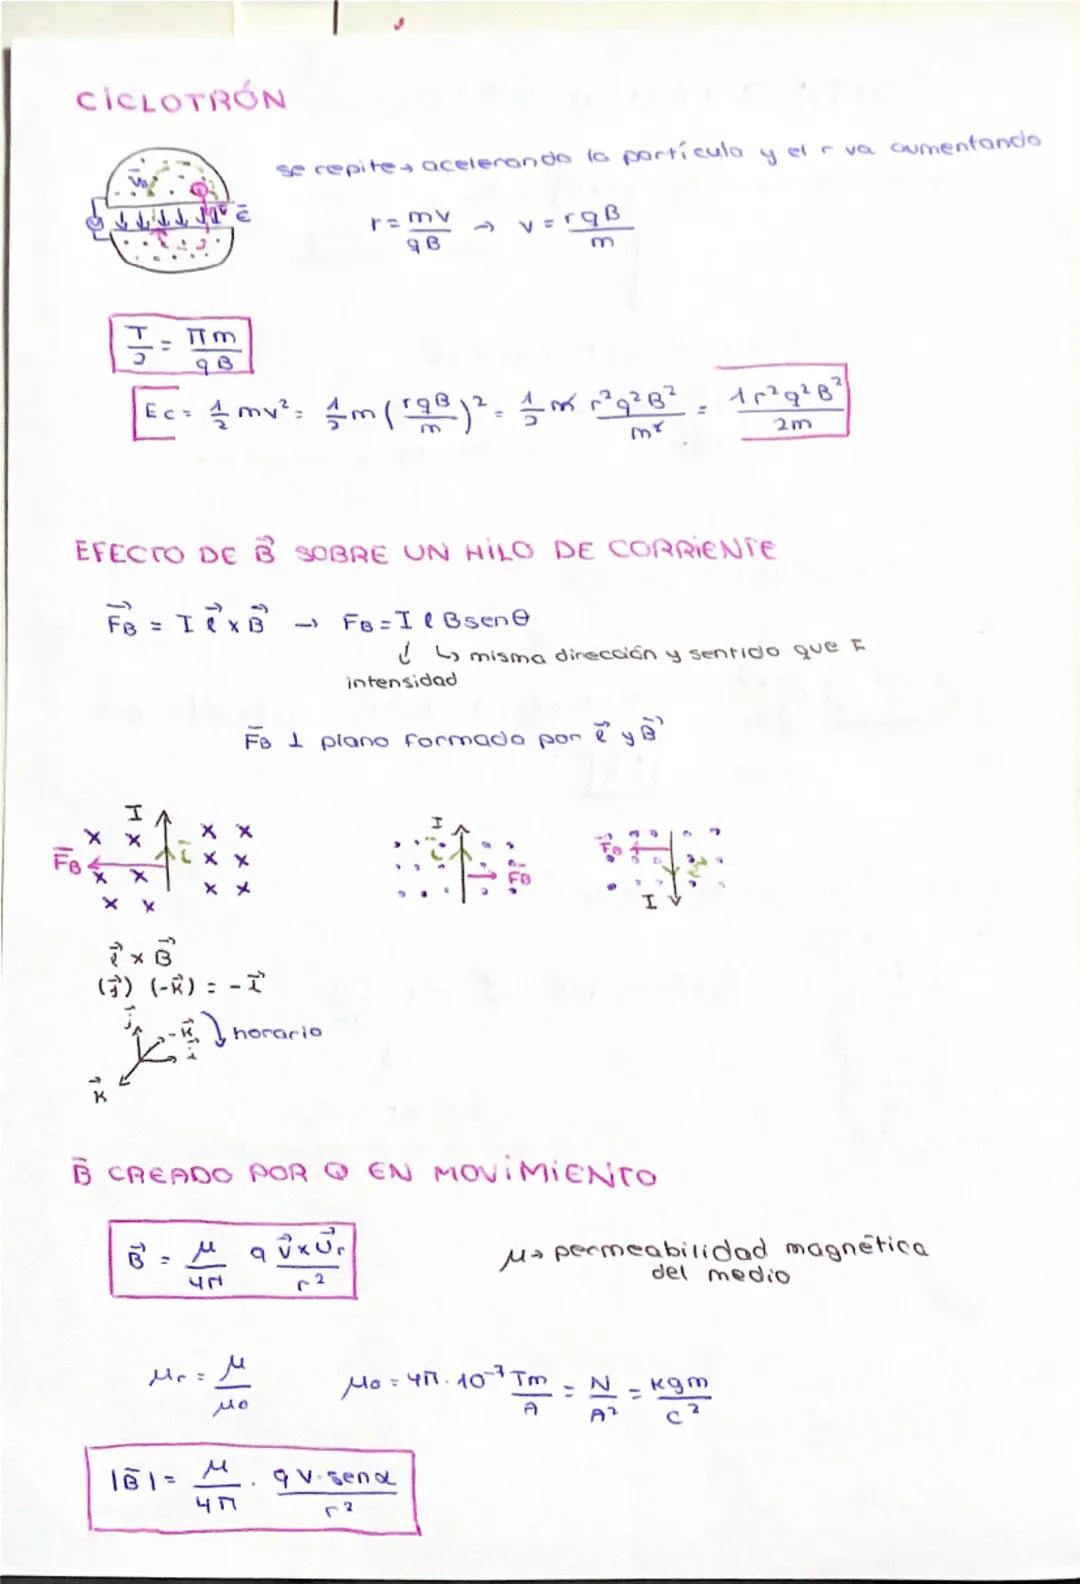 CICLOTRÓN
se repite → acelerando la partícula y el r va aumentando
r = mv/qB → v = rqB/m
T/2 = πm/qB
Ec = 1/2 mv² = 1/2 m (rqB/m)² = 1/2 m r²q²B²/m² = 1r²q²B²/2m
EFECTO DE B⃗ SOBRE UN HILO DE CORRIENTE
F⃗B = I ℓ⃗ x B⃗ → FB = I ℓ B sen θ
↓ ↳ misma dirección y sentido que
intensidad
F̄B ⊥ plano formado por ℓ⃗ y B⃗
I
F̄B
I
F̄B
F̄B
I
ℓ⃗ x B⃗
(j⃗) (-k⃗) = -i⃗
j⃗ -k⃗ i⃗ horario
k⃗
B̄ CREADO POR Q EN MOVIMIENTO
B⃗ = μ/4π q v⃗ x u⃗r/r²
μ → permeabilidad magnética
del medio
μr = μ/μ0
μ0 = 4π · 10⁻⁷ Tm/A = N/A² = kgm/C²
|B̄| = μ/4π · q v · sen α/r²